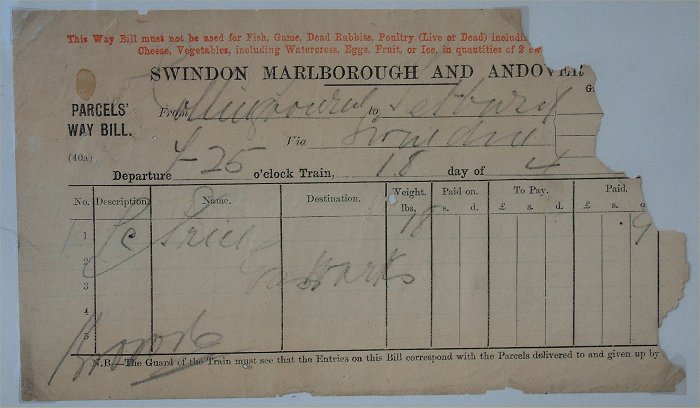 This Way Bill must not be used for Fish, Game, Dead Rabbits, Poultry (Live or Dead) includi
Cheese, Vegetables, including Watercress, Eggs, Fruit, or Ice, in quantities of 2 cw
SWINDON MARLBOROUGH AND ANDOVER
G
PARCELS' WAY BILL.
From Collingbourne to Tetbury
Via Swindon
(40a)
Departure 4-25 o'clock Train, 18 day of 4
No. Description Name. Destination. Weight. Paid on. To Pay. Paid.
lbs. s. d. £ s. d. £ s.
1 Pc Price 18 9
2
3
4
5
N.B.—The Guard of the Train must see that the Entries on this Bill correspond with the Parcels delivered to and given up by